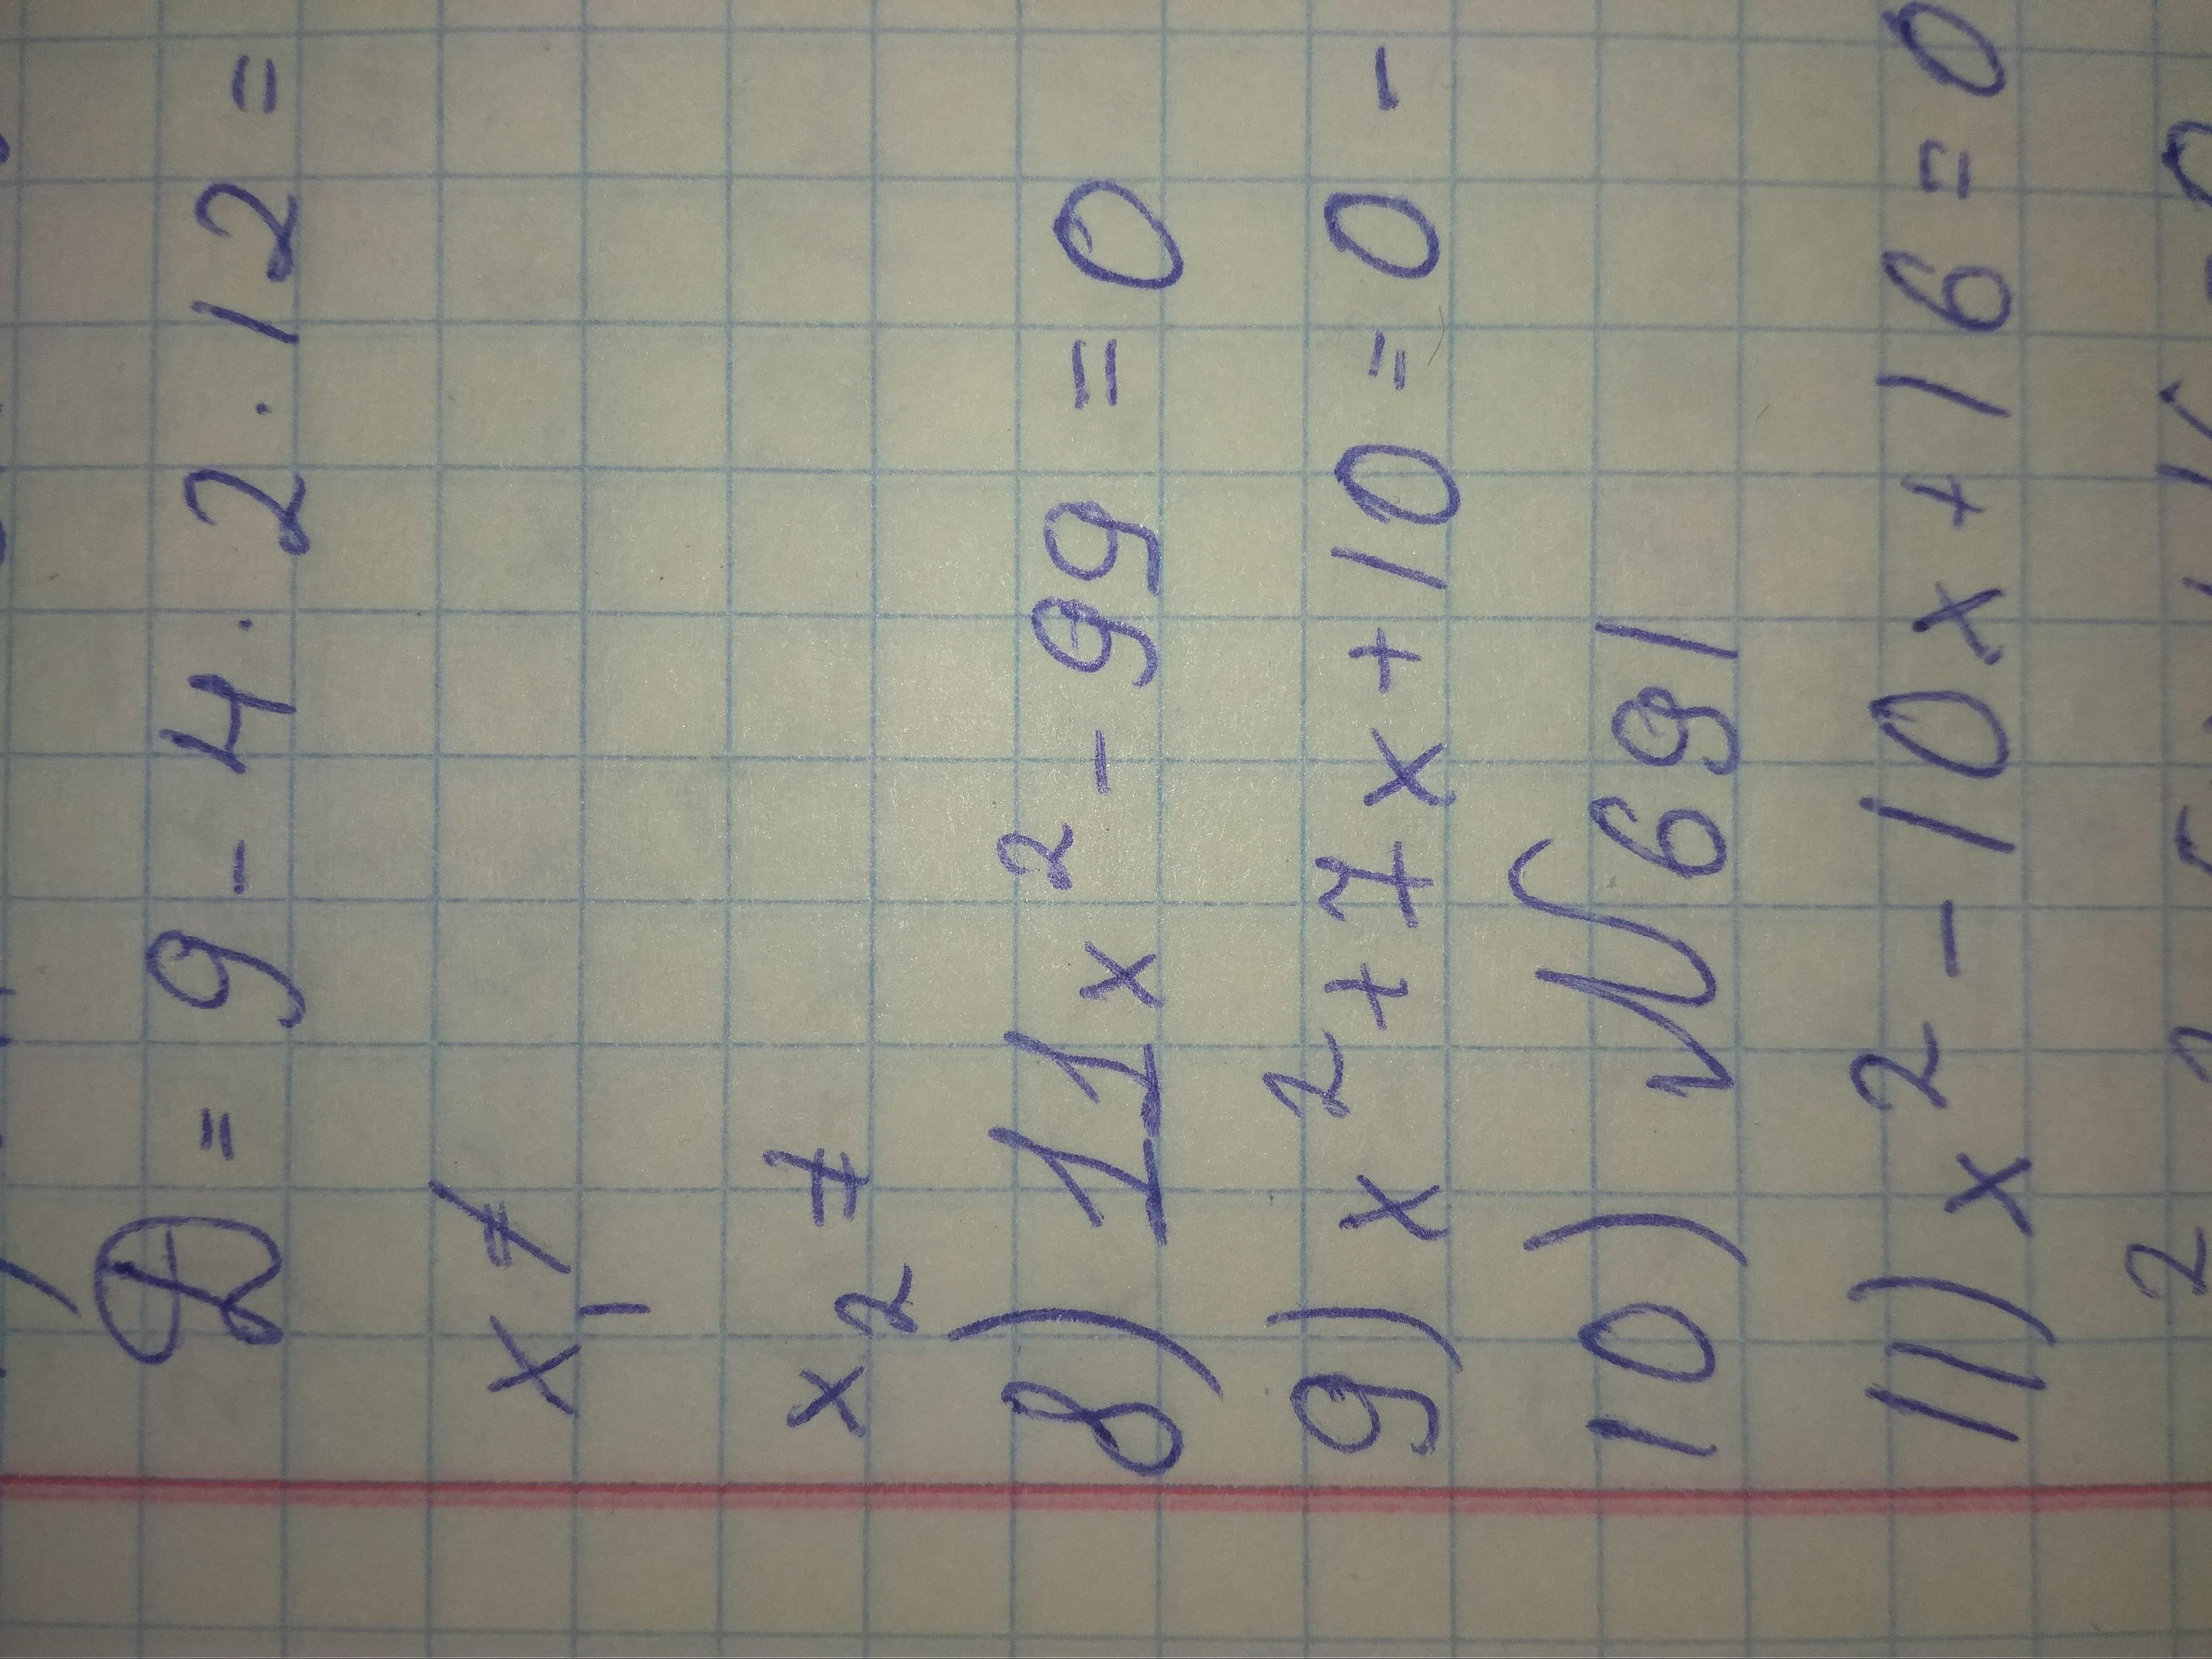 D = 9 - 4 · 2 · 12 =
x₁ ≠
x₂ ≠
8) 11x² - 99 = 0
9) x² + 7x + 10 = 0 -
10) № 691
11) x² - 10x + 16 = 0